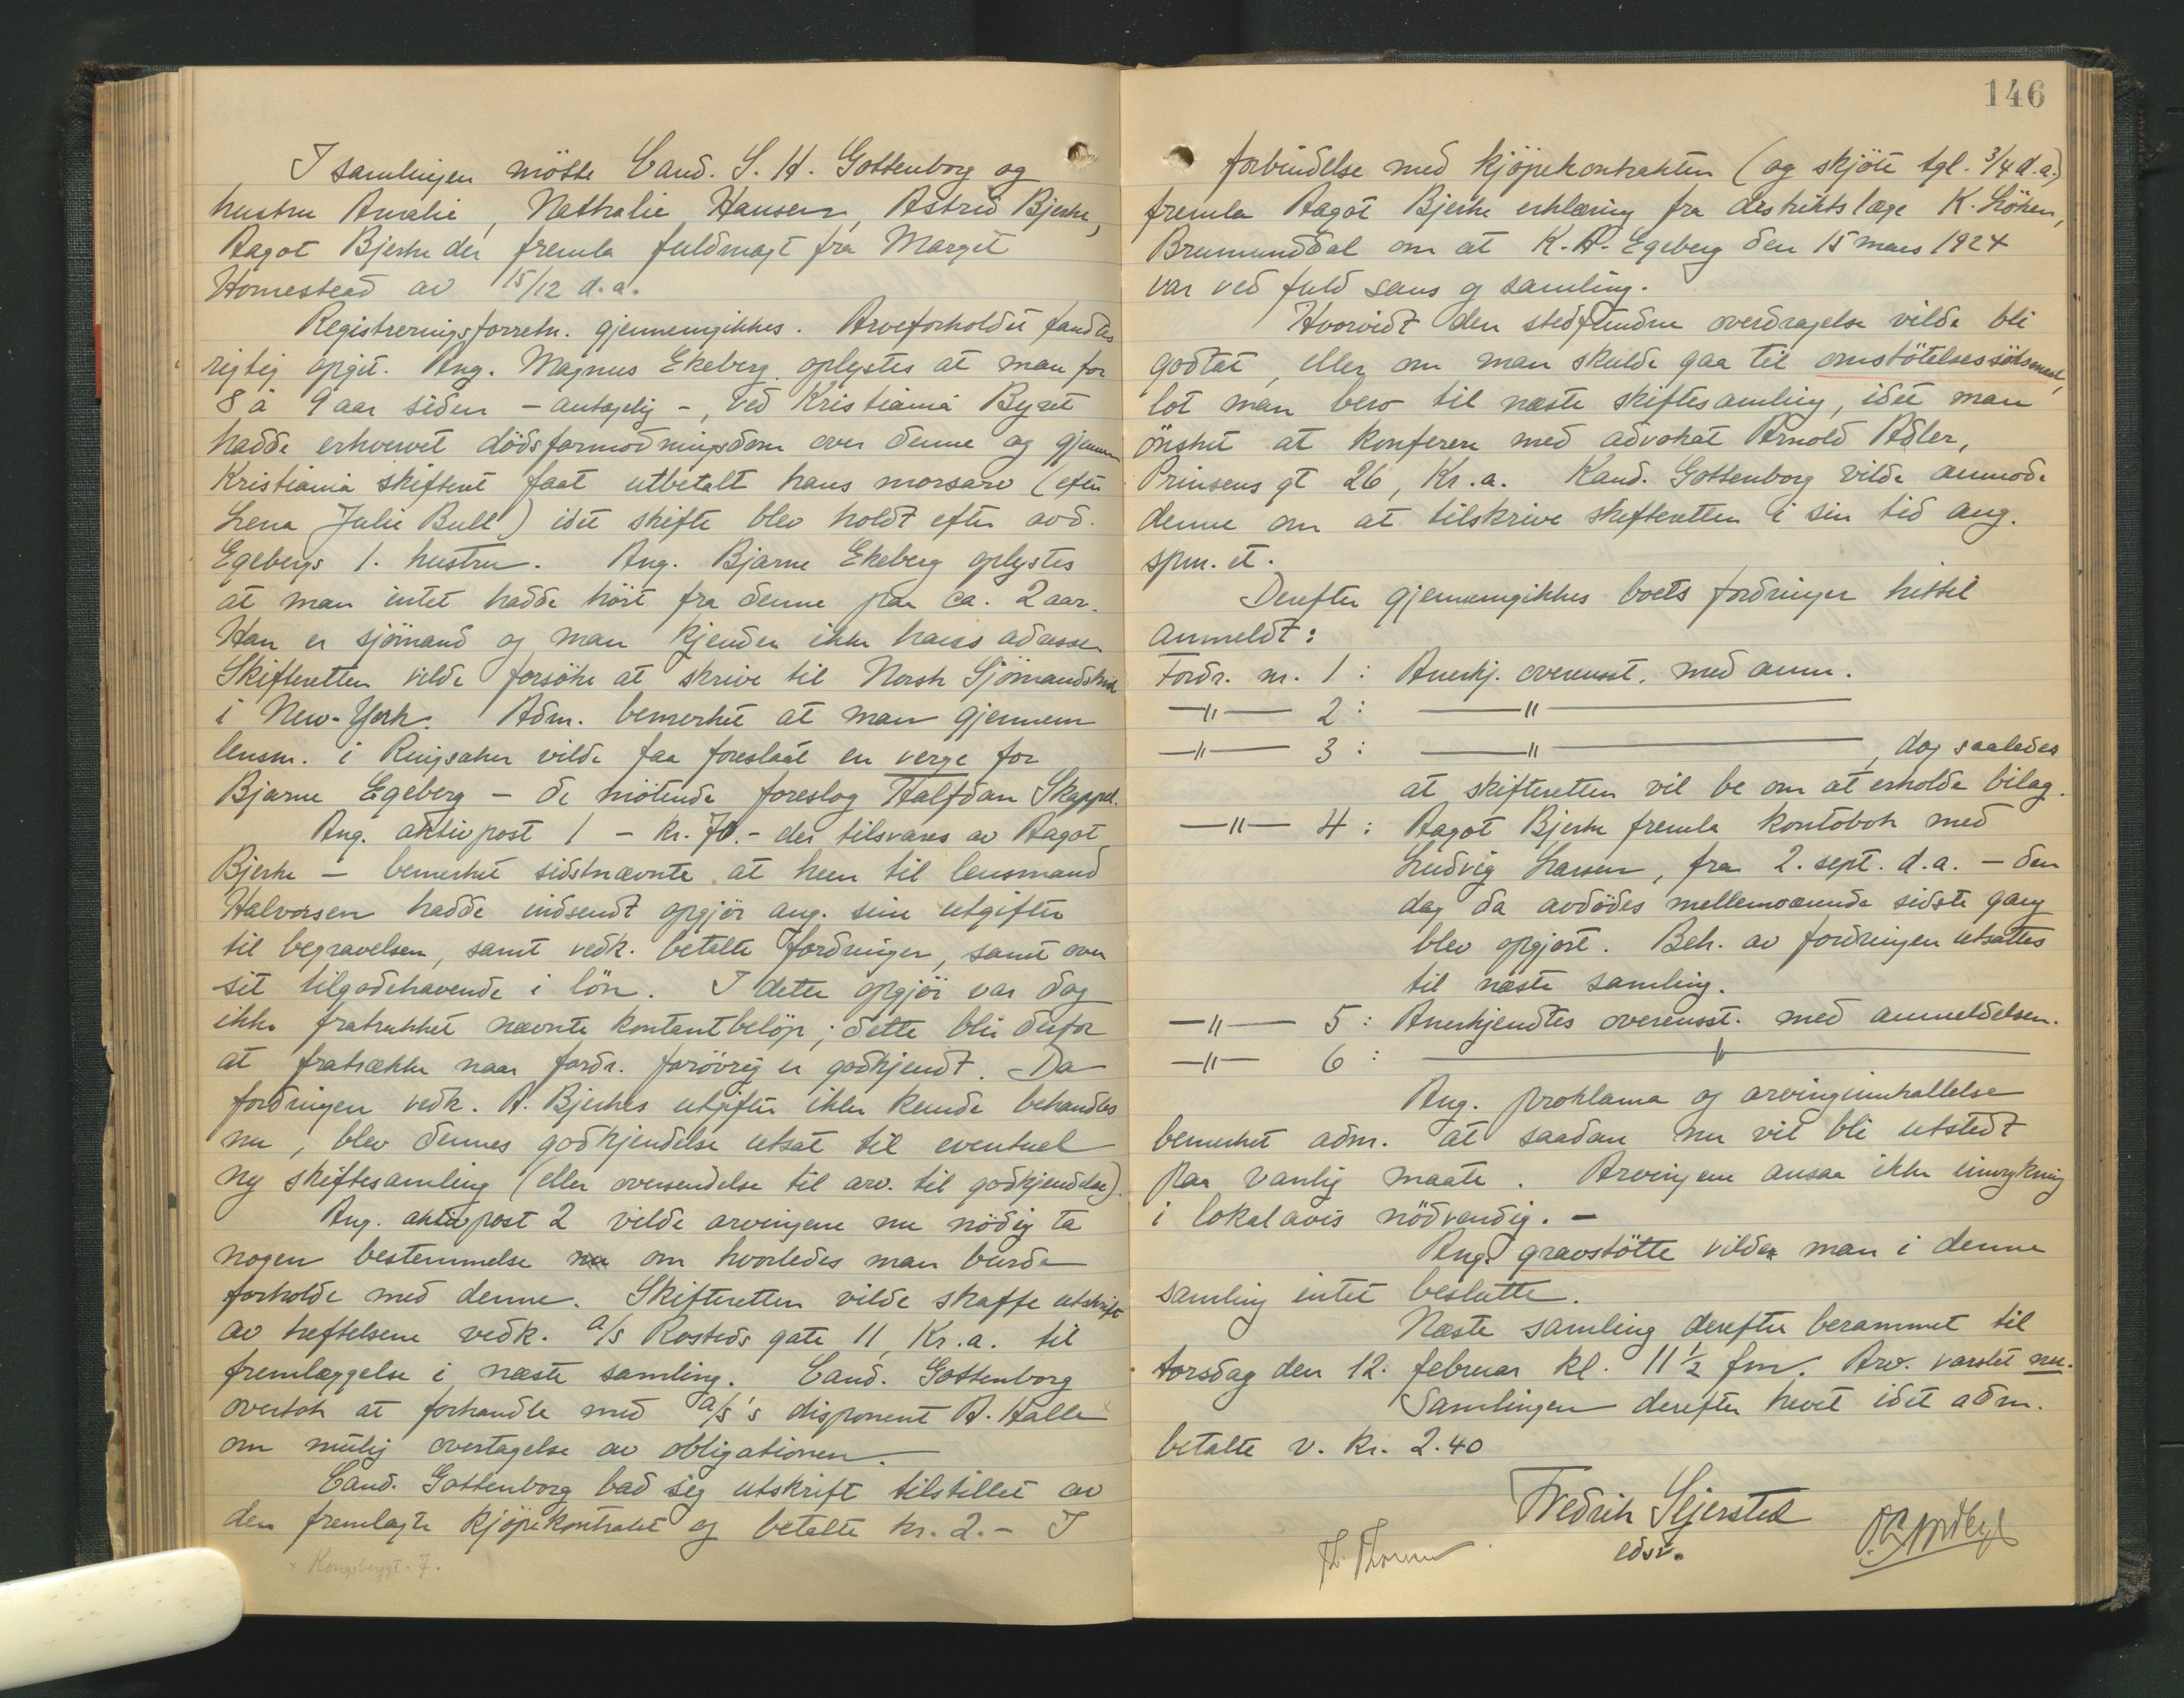 I samlingen mötte Cand. S. H. Gottenborg og
hustru Amalie, Nathalie Hansen, Astrid Bjerke,
Aagot Bjerke der fremla fuldmagt fra Margit
Homestead av 15/12 d.a.
Registreringsforretn. gjennemgikkes. Arveforholdet fandtes
rigtig opgit. Ang. Magnus Ekeberg oplystes at man for
8 à 9 aar siden - antagelig -, ved Kristiania Byret
hadde erhvervet dödsformodningsdom over denne og gjennem
Kristiania skifteret faat utbetalt hans morsarv (efter
Lena Julie Bull) idet skifte blev holdt efter avd.
Egebergs 1. hustru. Ang. Bjarne Ekeberg oplystes
at man intet hadde hört fra denne paa ca. 2 aar.
Han er sjömand og man kjender ikke hans adresse.
Skifteretten vilde forsöke at skrive til Norsk Sjömandskirke
i New-York. Adm. bemerket at man gjennem
lensm. i Ringsaker vilde faa foreslaat en verge for
Bjarne Egeberg - de mötende foreslog Halfdan Skappel.
Ang. aktivpost 1 - kr. 70.- der tilsvares av Aagot
Bjerke - bemerket sidstnævnte at hun til lensmand
Halvorsen hadde indsendt opgjör ang. sine utgifter
til begravelsen, samt vedk. betalte fordringer, samt over
sit tilgodehavende i lön. I dette opgjör var dog
ikke fratrukket nævnte kontantbelöp; dette blir derfor
at fratrække naar fordr. forövrig er godkjendt. Da
fordringen vedk. A. Bjerkes utgifter ikke kunde behandles
nu, blev dennes godkjendelse utsat til eventuel
ny skiftesamling (eller oversendelse til arv. til godkjendelse).
Ang. aktivpost 2 vilde arvingene nu nödig ta
nogen bestemmelse om hvorledes man burde
forholde med denne. Skifteretten vilde skaffe utskrift
av heftelsene vedk. a/s Rosteds gate 11, Kr.a. til
fremlæggelse i næste samling. Cand. Gottenborg
overtok at forhandle med a/s's disponent A. Halle x
om mulig overtagelse av obligationen.
Cand. Gottenborg bad sig utskrift tilstillet av
den fremlagte kjöpekontrakt og betalte kr. 2.- I
x Kongsberggt. 7.
146
forbindelse med kjöpekontrakten (og skjöte tgl. 3/4 d.a.)
fremla Aagot Bjerke erklæring fra destriktslæge K. Löken,
Brumunddal om at K. A. Egeberg den 15 mars 1924
var ved fuld sans og samling.
Hvorvidt den stedfundne overdragelse vilde bli
godtat, eller om man skulde gaa til omstötelsessöksmaal,
lot man bero til næste skiftesamling, idet man
önsket at konferere med advokat Arnold Adler,
Prinsens gt 26, Kr.a. Kand. Gottenborg vilde anmode
denne om at tilskrive skifteretten i sin tid ang.
spm. et.
Derefter gjennemgikkes boets fordringer hittil
anmeldt:
Fordr. nr. 1: Anerkj. overensst. med anm.
—"— 2: —"—
—"— 3: —"—, dog saaledes
at skifteretten vil be om at erholde bilag.
—"— 4: Aagot Bjerke fremla kontobok med
Ludvig Larsen, fra 2. sept. d.a. - den
dag da avdödes mellemværende sidste gang
blev opgjort. Beh. av fordringen utsattes
til næste samling.
—"— 5: Anerkjendtes overensst. med anmeldelsen.
—"— 6: —"—
Ang. proklama og arvinginnkallelse
bemerket adm. at saadan nu vil bli utstedt
paa vanlig maate. Arvingene ansaa ikke innrykning
i lokalavis nödvendig. -
Ang. gravstötte vilde man i denne
samling intet beslutte.
Næste samling derefter berammet til
torsdag den 12. februar kl. 11 1/2 fm. Arv. varslet nu.
Samlingen derefter hevet idet adm.
betalte v. kr. 2.40
Fredrik Sejersted
edsv.